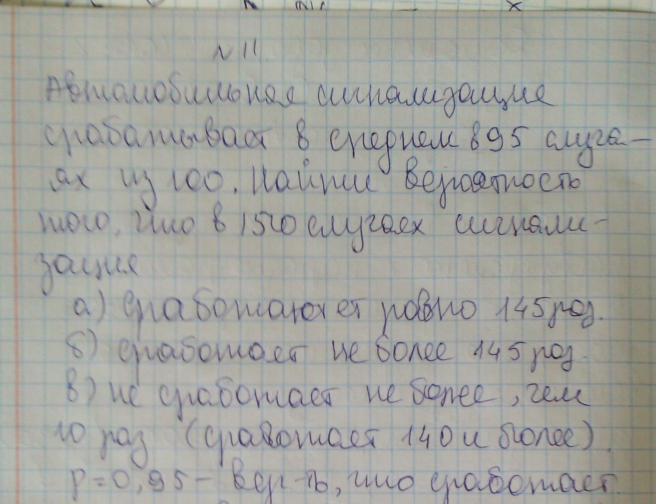 N 11.
Автомобильная сигнализация
срабатывает в среднем в 95 случа-
ях из 100. Найти вероятность
того, что в 150 случаях сигнали-
зация
а) сработает ровно 145 раз.
б) сработает не более 145 раз.
в) не сработает не более, чем
10 раз (сработает 140 и более).
p = 0,95 - вер-ть, что сработает